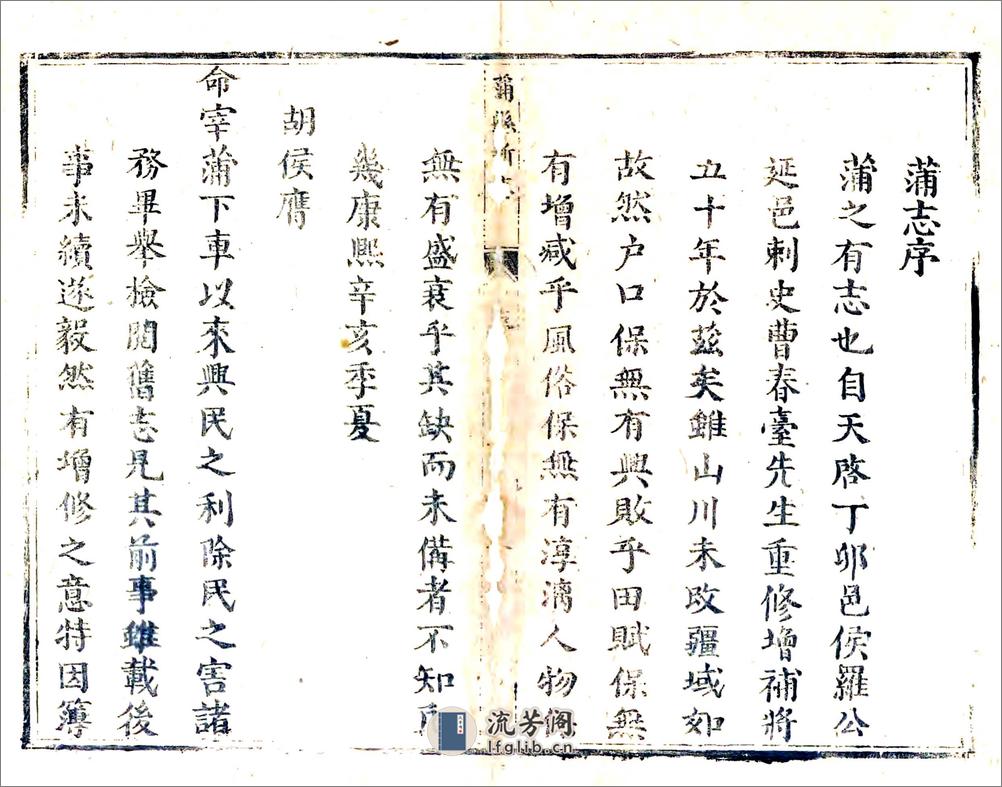 蒲志序
蒲之有志也自天啓丁卯邑侯羅公
延邑刺史曹春臺先生重修增補將
五十年於茲矣雖山川未改疆域如
故然户口保無有興敗乎田賦保無
有增减乎風俗保無有淳漓人物
無有盛衰乎其缺而未備者不知凡
幾康熙辛亥季夏
胡侯膺
命宰蒲下車以來興民之利除民之害諸
務畢舉檢閱舊志見其前事雖載後
事未續遂毅然有增修之意特因簿
蒲縣新
序
流芳阁
lfglib.cn